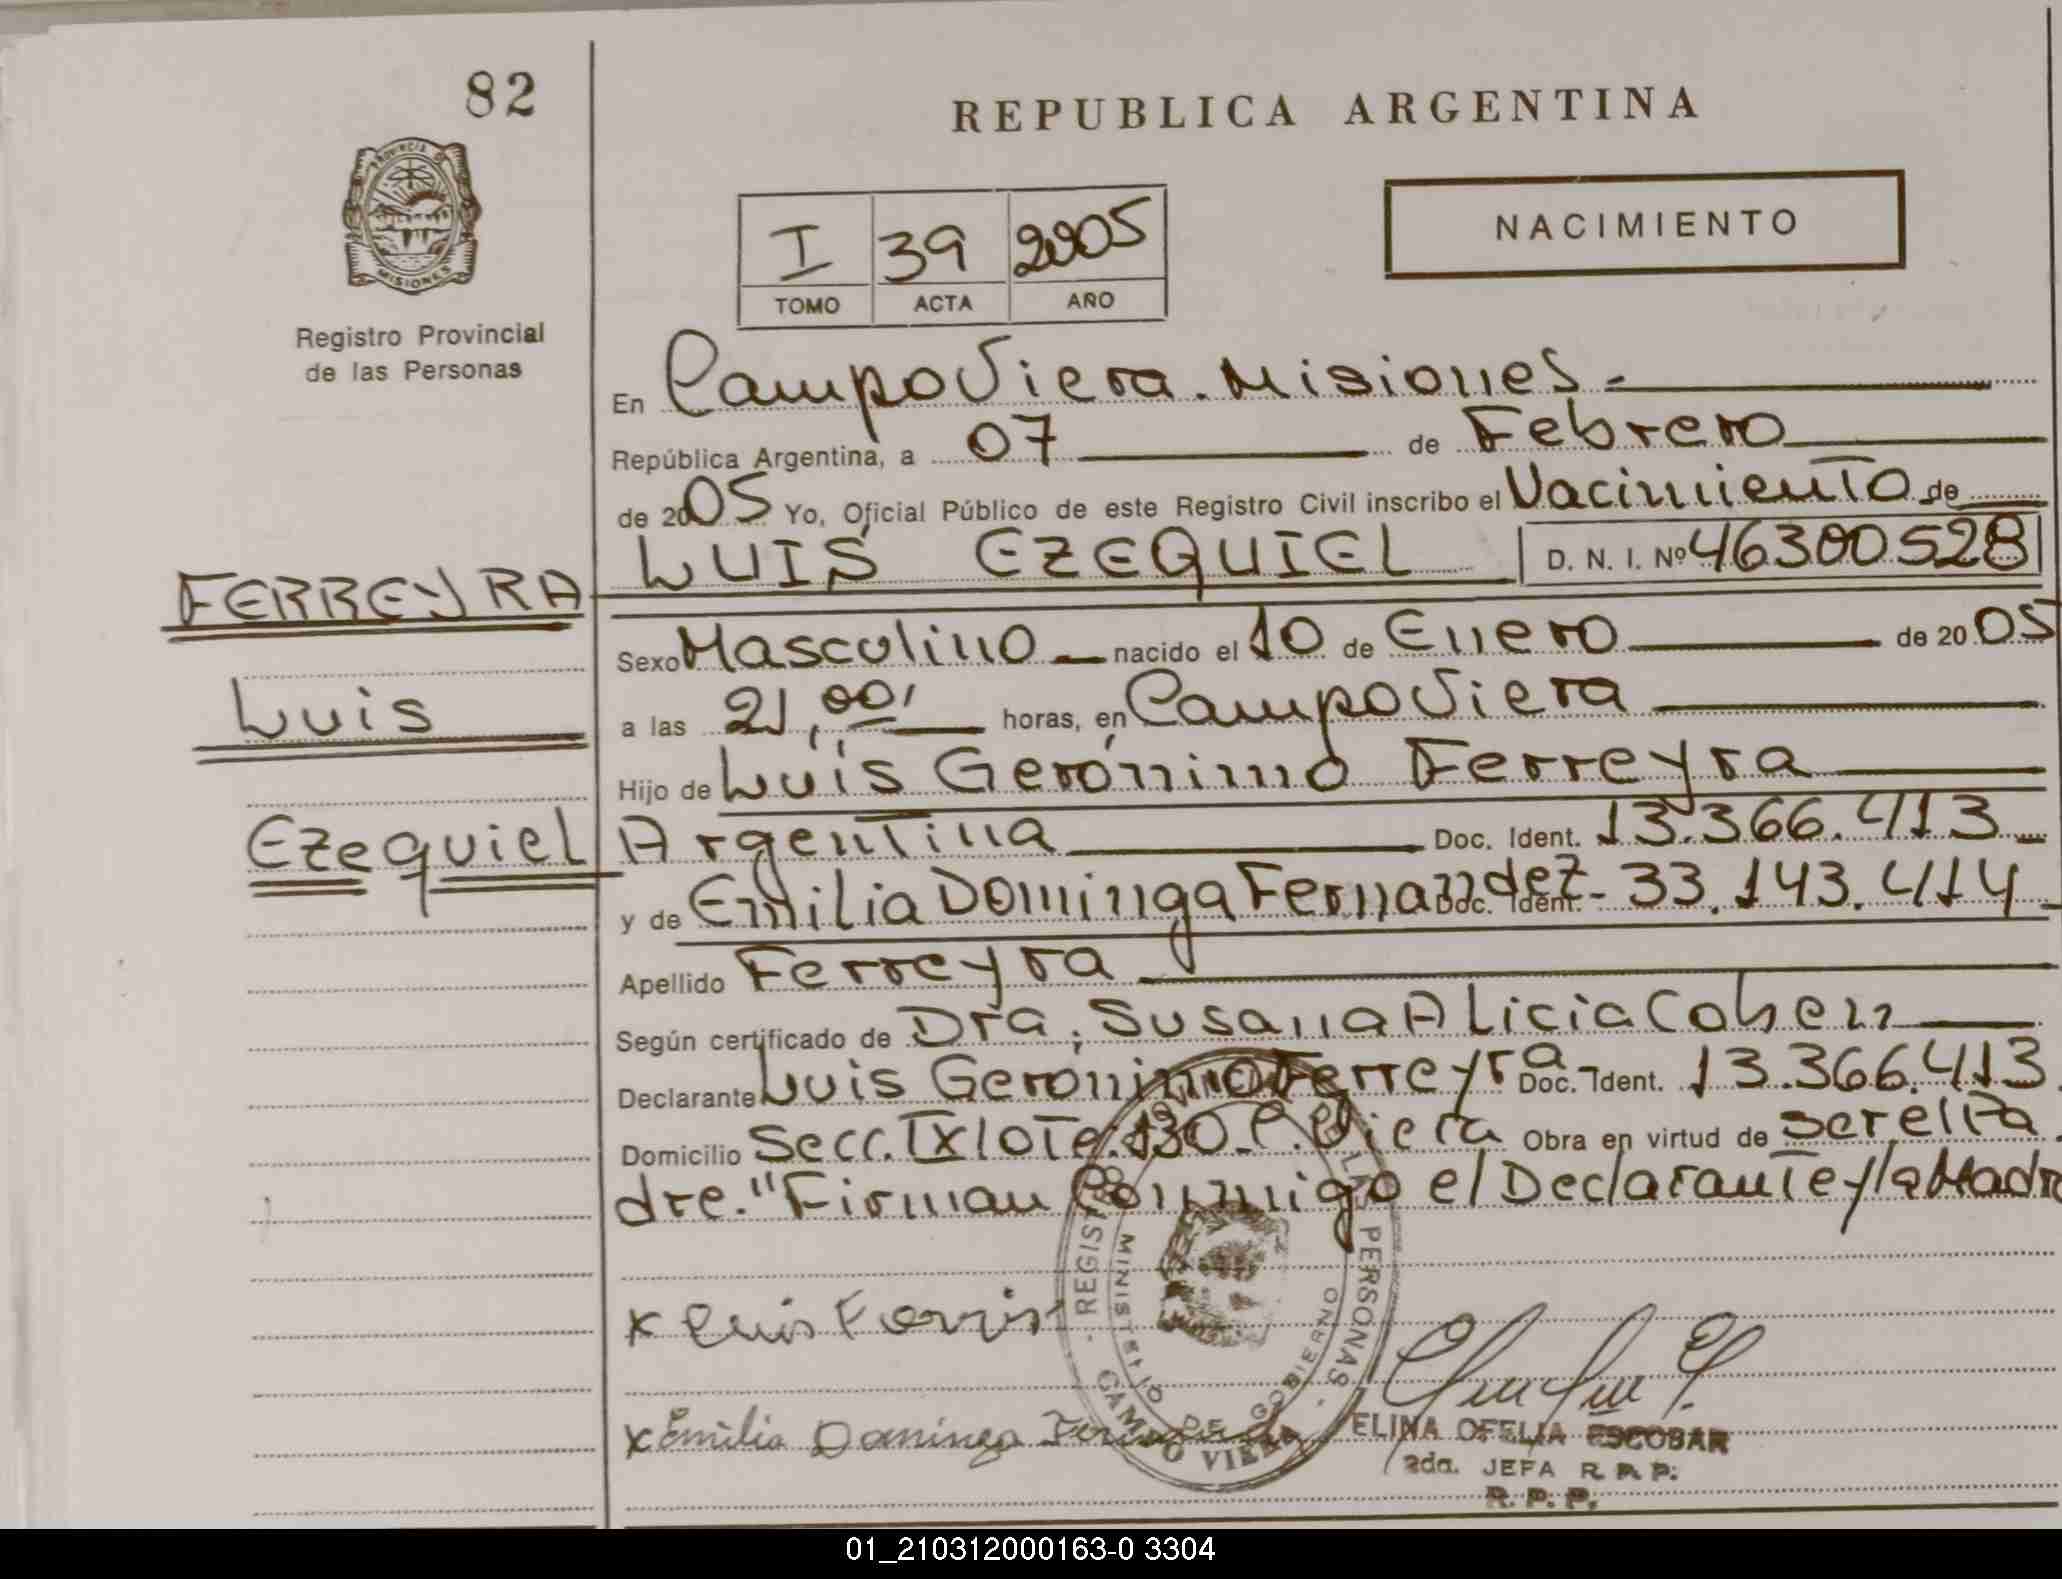 82
PROVINCIA DE
MISIONES
Registro Provincial
de las Personas
REPUBLICA ARGENTINA
NACIMIENTO
I 39 2005
TOMO ACTA AÑO
En Campo Viera. Misiones.-
República Argentina, a 07 de Febrero
de 2005 Yo, Oficial Público de este Registro Civil inscribo el Nacimiento de
LUIS EZEQUIEL D. N. I. Nº 46300528
FERREYRA
Luis
Ezequiel
Sexo Masculino nacido el 10 de Enero de 20 05
a las 21,00' horas, en Campo Viera
Hijo de Luis Gerónimo Ferreyra
Argentina Doc. Ident. 13.366.413
y de Emilia Dominga Fernandez Doc. Ident. - 33.143.414
Apellido Ferreyra
Según certificado de Dra. Susana Alicia Cohen
Declarante Luis Gerónimo Ferreyra Doc. Ident. 13.366.413
Domicilio Secc. IX lote: 130 C. Viera Obra en virtud de ser el Pa
dre." Firman Conmigo el Declarante y la Madr
x Luis
x Emilia Dominga
MINISTERIO DE GOBIERNO
PERSONAS
CAMPO VIERA
ELINA OFELIA ESCOBAR
2da. JEFA R. P. P.
R. P. P.
01_210312000163-0 3304